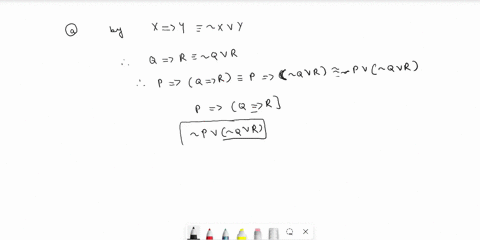 ⓐ by X => Y ≡ ~X ∨ Y
∴ Q => R ≡ ~Q ∨ R
∴ P => (Q => R) ≡ P => (~Q ∨ R) ≡ ~P ∨ (~Q ∨ R)
P => (Q => R]
~P ∨ (~Q ∨ R)